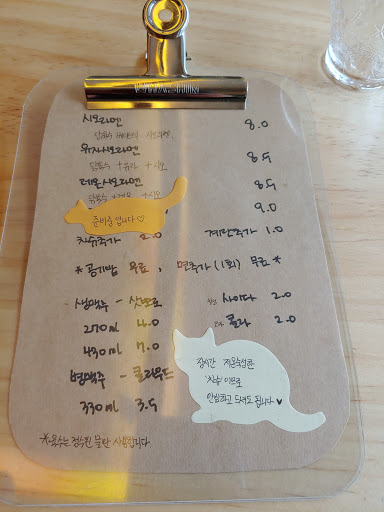 시오라멘 8.0
닭육수 베이스의 시오라멘.
유자시오라멘 8.5
닭육수 + 유자 + 시오
레몬시오라멘 8.5
닭육수 + 레몬 + 시오
9.0
준비중 입니다 ♡
차슈추가 2.0 계란추가 1.0
* 공기밥 무료, 면추가 (1회) 무료 *
생맥주 - 삿뽀로
270ml 4.0
430ml 7.0
병맥주 - 클라우드
330ml 3.5
사이다 2.0
콜라 2.0
장시간 저온숙성한
'차슈' 이므로
안심하고 드셔도 됩니다 ♥
*육수는 정수된 물만 사용합니다